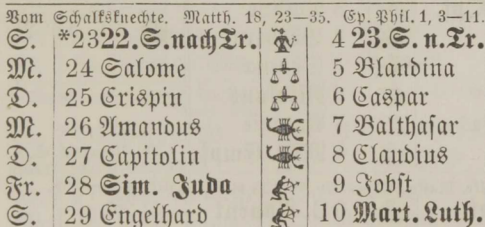 Vom Schalksknechte. Matth. 18, 23—35. Ep. Phil. 1, 3—11.
S. *23 22. S. nach Tr. 4 23. S. n. Tr.
M. 24 Salome 5 Blandina
D. 25 Crispin 6 Caspar
M. 26 Amandus 7 Balthasar
D. 27 Capitolin 8 Claudius
Fr. 28 Sim. Juda 9 Jobst
S. 29 Engelhard 10 Mart. Luth.